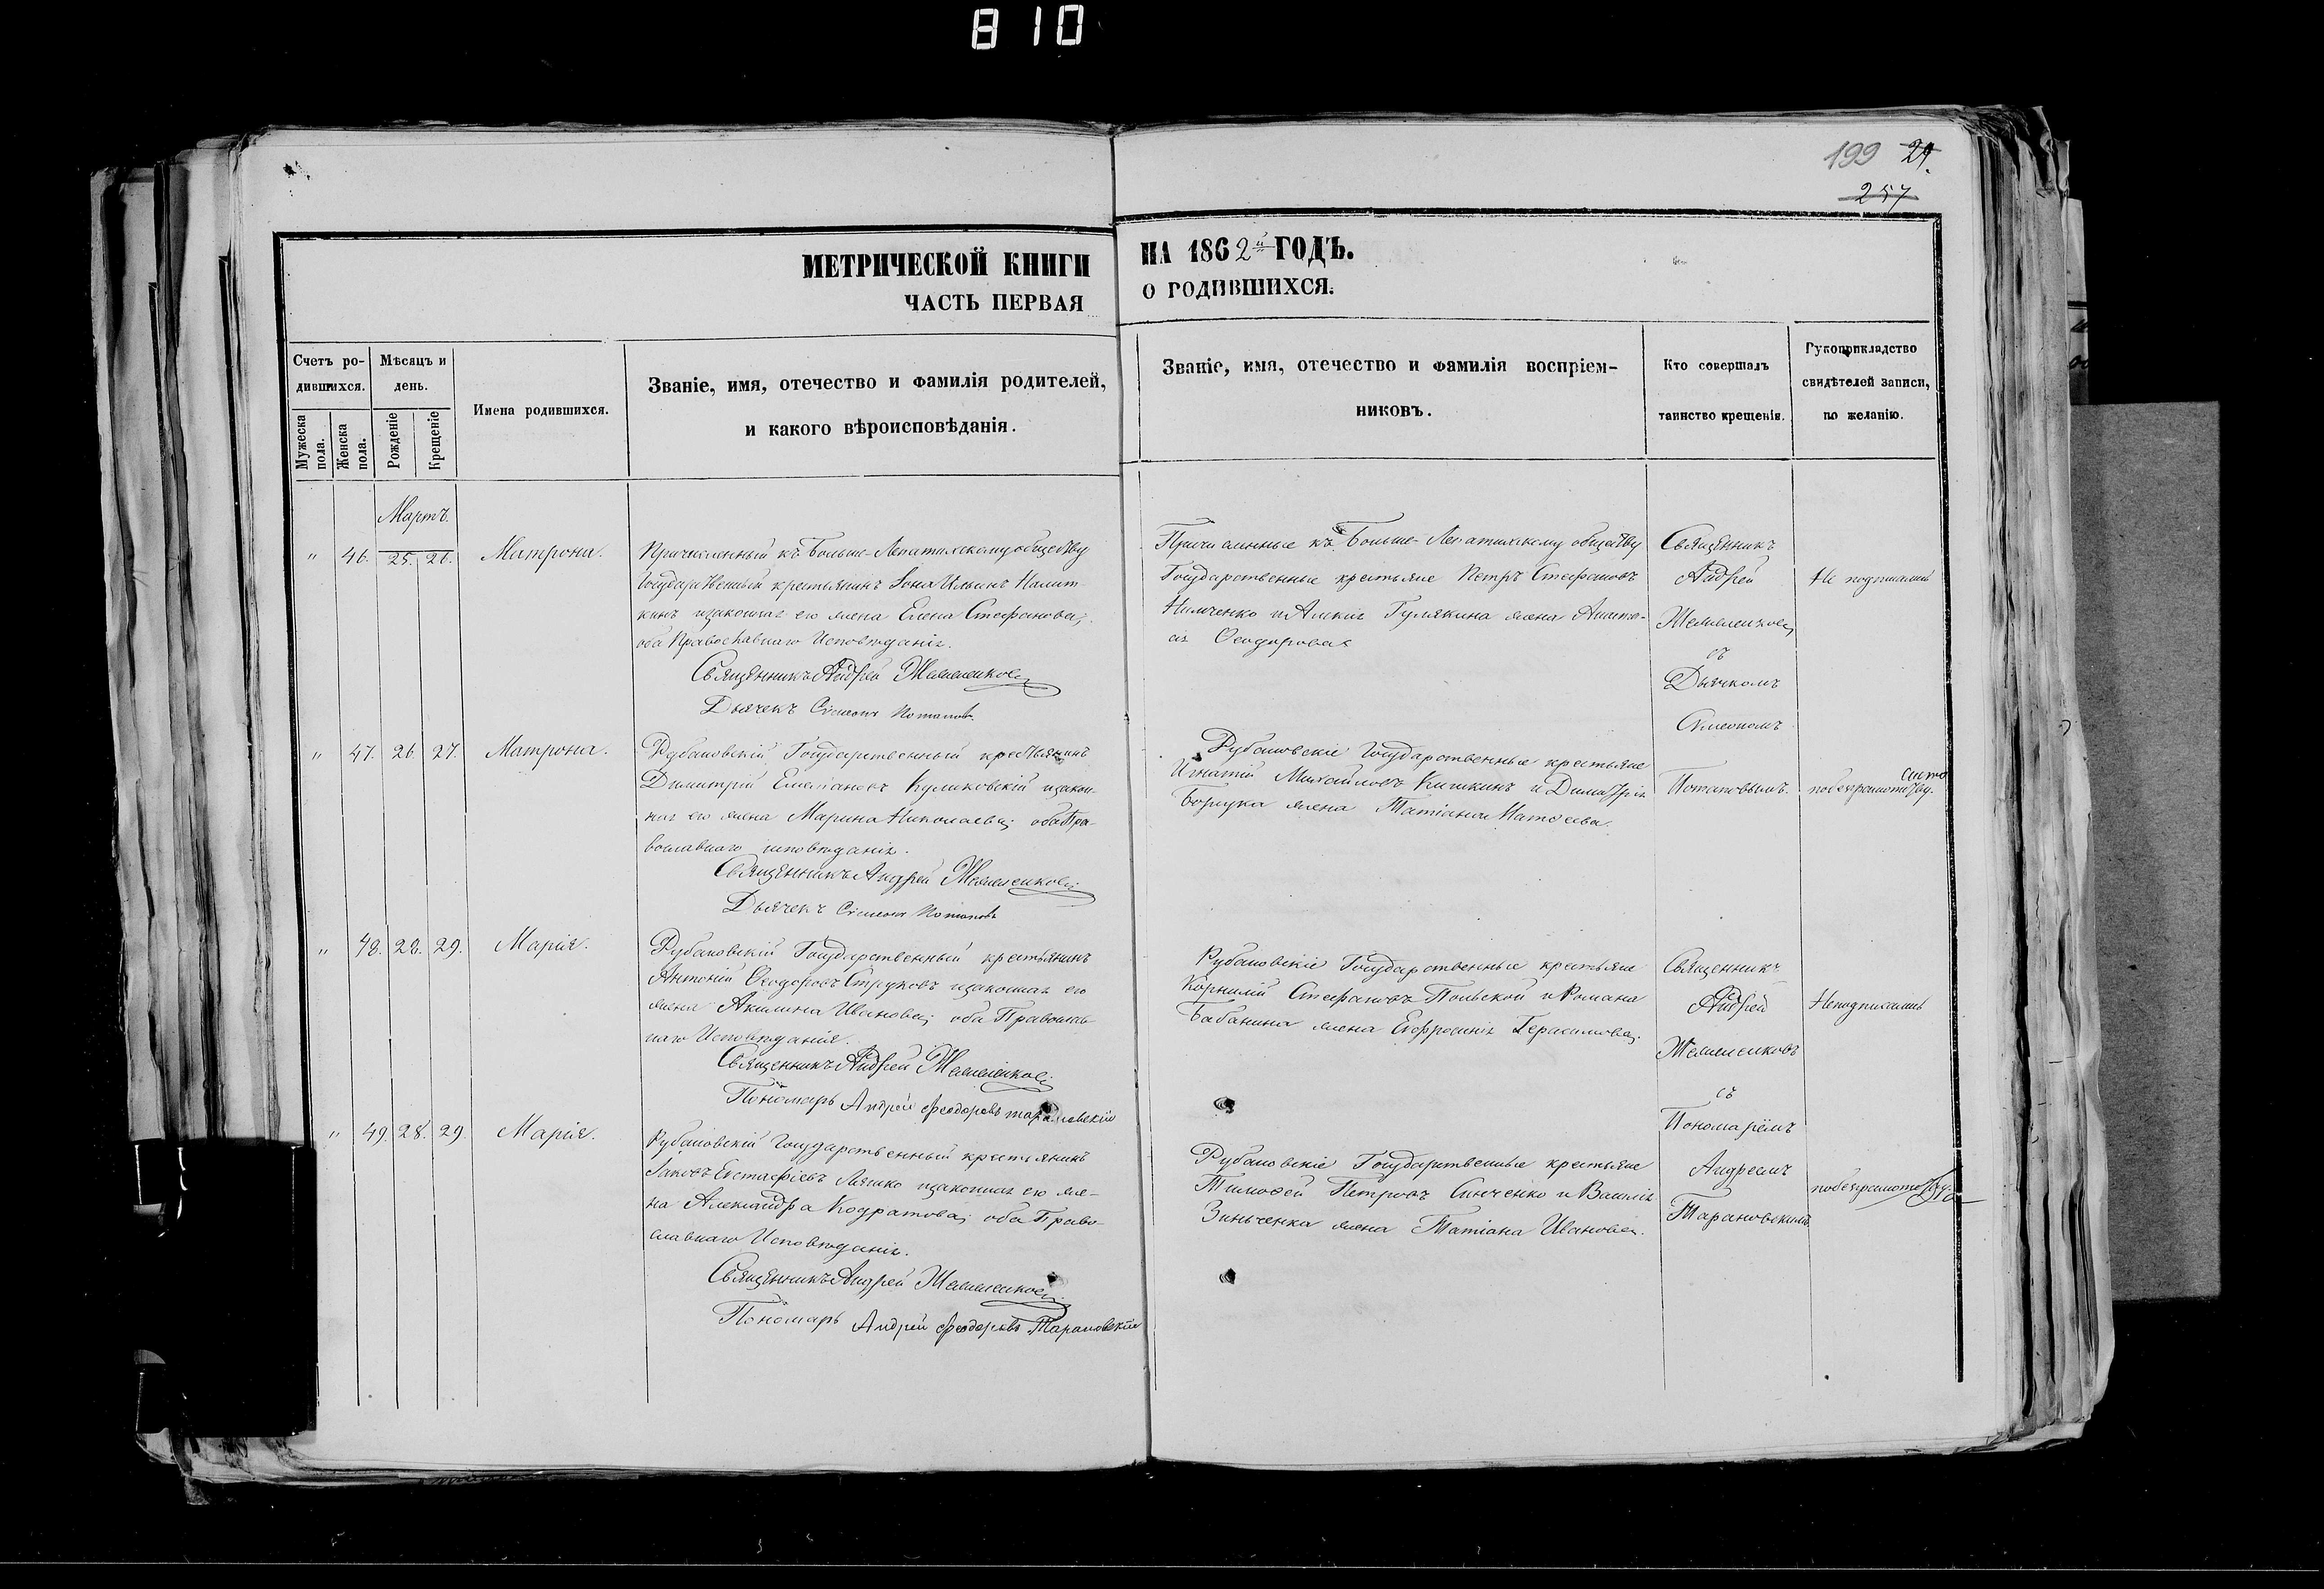 810
199 29.
257
МЕТРИЧЕСКОЙ КНИГИ НА 1862й ГОДЪ.
ЧАСТЬ ПЕРВАЯ О РОДИВШИХСЯ.
Счетъ ро-
дившихся.
Мужеска
пола.
Женска
пола.
Мѣсяцъ и
день.
Рожденіе
Крещеніе
Имена родившихся.
Званіе, имя, отечество и фамилія родителей,
и какого вѣроисповѣданія.
Званіе, имя, отечество и фамилія воспріем-
никовъ.
Кто совершалъ
таинство крещенія.
Рукоприкладство
свидѣтелей записи,
по желанію.
Мартъ.
" 46. 25. 26. Матрона.
Причисленный къ Больше-Лепатихскому обществу
Государственный крестьянинъ Іона Ильинъ
и законная его жена Елена Стефанова,
оба Православнаго Исповѣданія.
Священникъ Андрей
Дьячекъ Сімеонъ Потаповъ
Причисленные къ Больше-Лепатихскому обществу
Государственные крестьяне Петръ Стефановъ
Нимченко и жена
Ѳеодорова
Священникъ
Андрей
съ
Дьячкомъ
Симеономъ
Потаповымъ.
Не подписались
" 47. 26. 27. Матрона.
Рубановскій Государственный крестьянинъ
Димитрій Емеліановъ Куликовскій и закон-
ная его жена Марина Николаева, оба Пра-
вославнаго исповѣданія.
Священникъ Андрей
Дьячекъ Сімеонъ Потаповъ
Рубановскіе Государственные крестьяне
Игнатій Михайловъ Кишкинъ и Димитрія
Борщука жена Татіана Матѳеева.
по безграмотству.
" 48. 28. 29. Марія.
Рубановскій Государственный крестьянинъ
Антоній Ѳеодоровъ Струковъ и законная его
жена Акилина Иванова, оба Православ-
наго Исповѣданія.
Священникъ Андрей
Пономарь Андрей Феодоровъ Тарановскій
Рубановскіе Государственные крестьяне
Корнилій Стефановъ Польской и Романа
Бабанина жена Евфросинія Герасимова.
Священникъ
Андрей
съ
Пономарёмъ
Андреемъ
Тарановскимъ.
Неподписались
" 49. 28. 29. Марія.
Рубановскій Государственный крестьянинъ
Іаковъ Евстафіевъ Ляшко и законная его же-
на Александра Кодратова, оба Право-
славнаго Исповѣданія.
Священникъ Андрей
Пономарь Андрей Феодоровъ Тарановскій
Рубановскіе Государственные крестьяне
Тимоѳей Петровъ Синченко и Василія
Зинченка жена Татіана Иванова.
по безграмотству